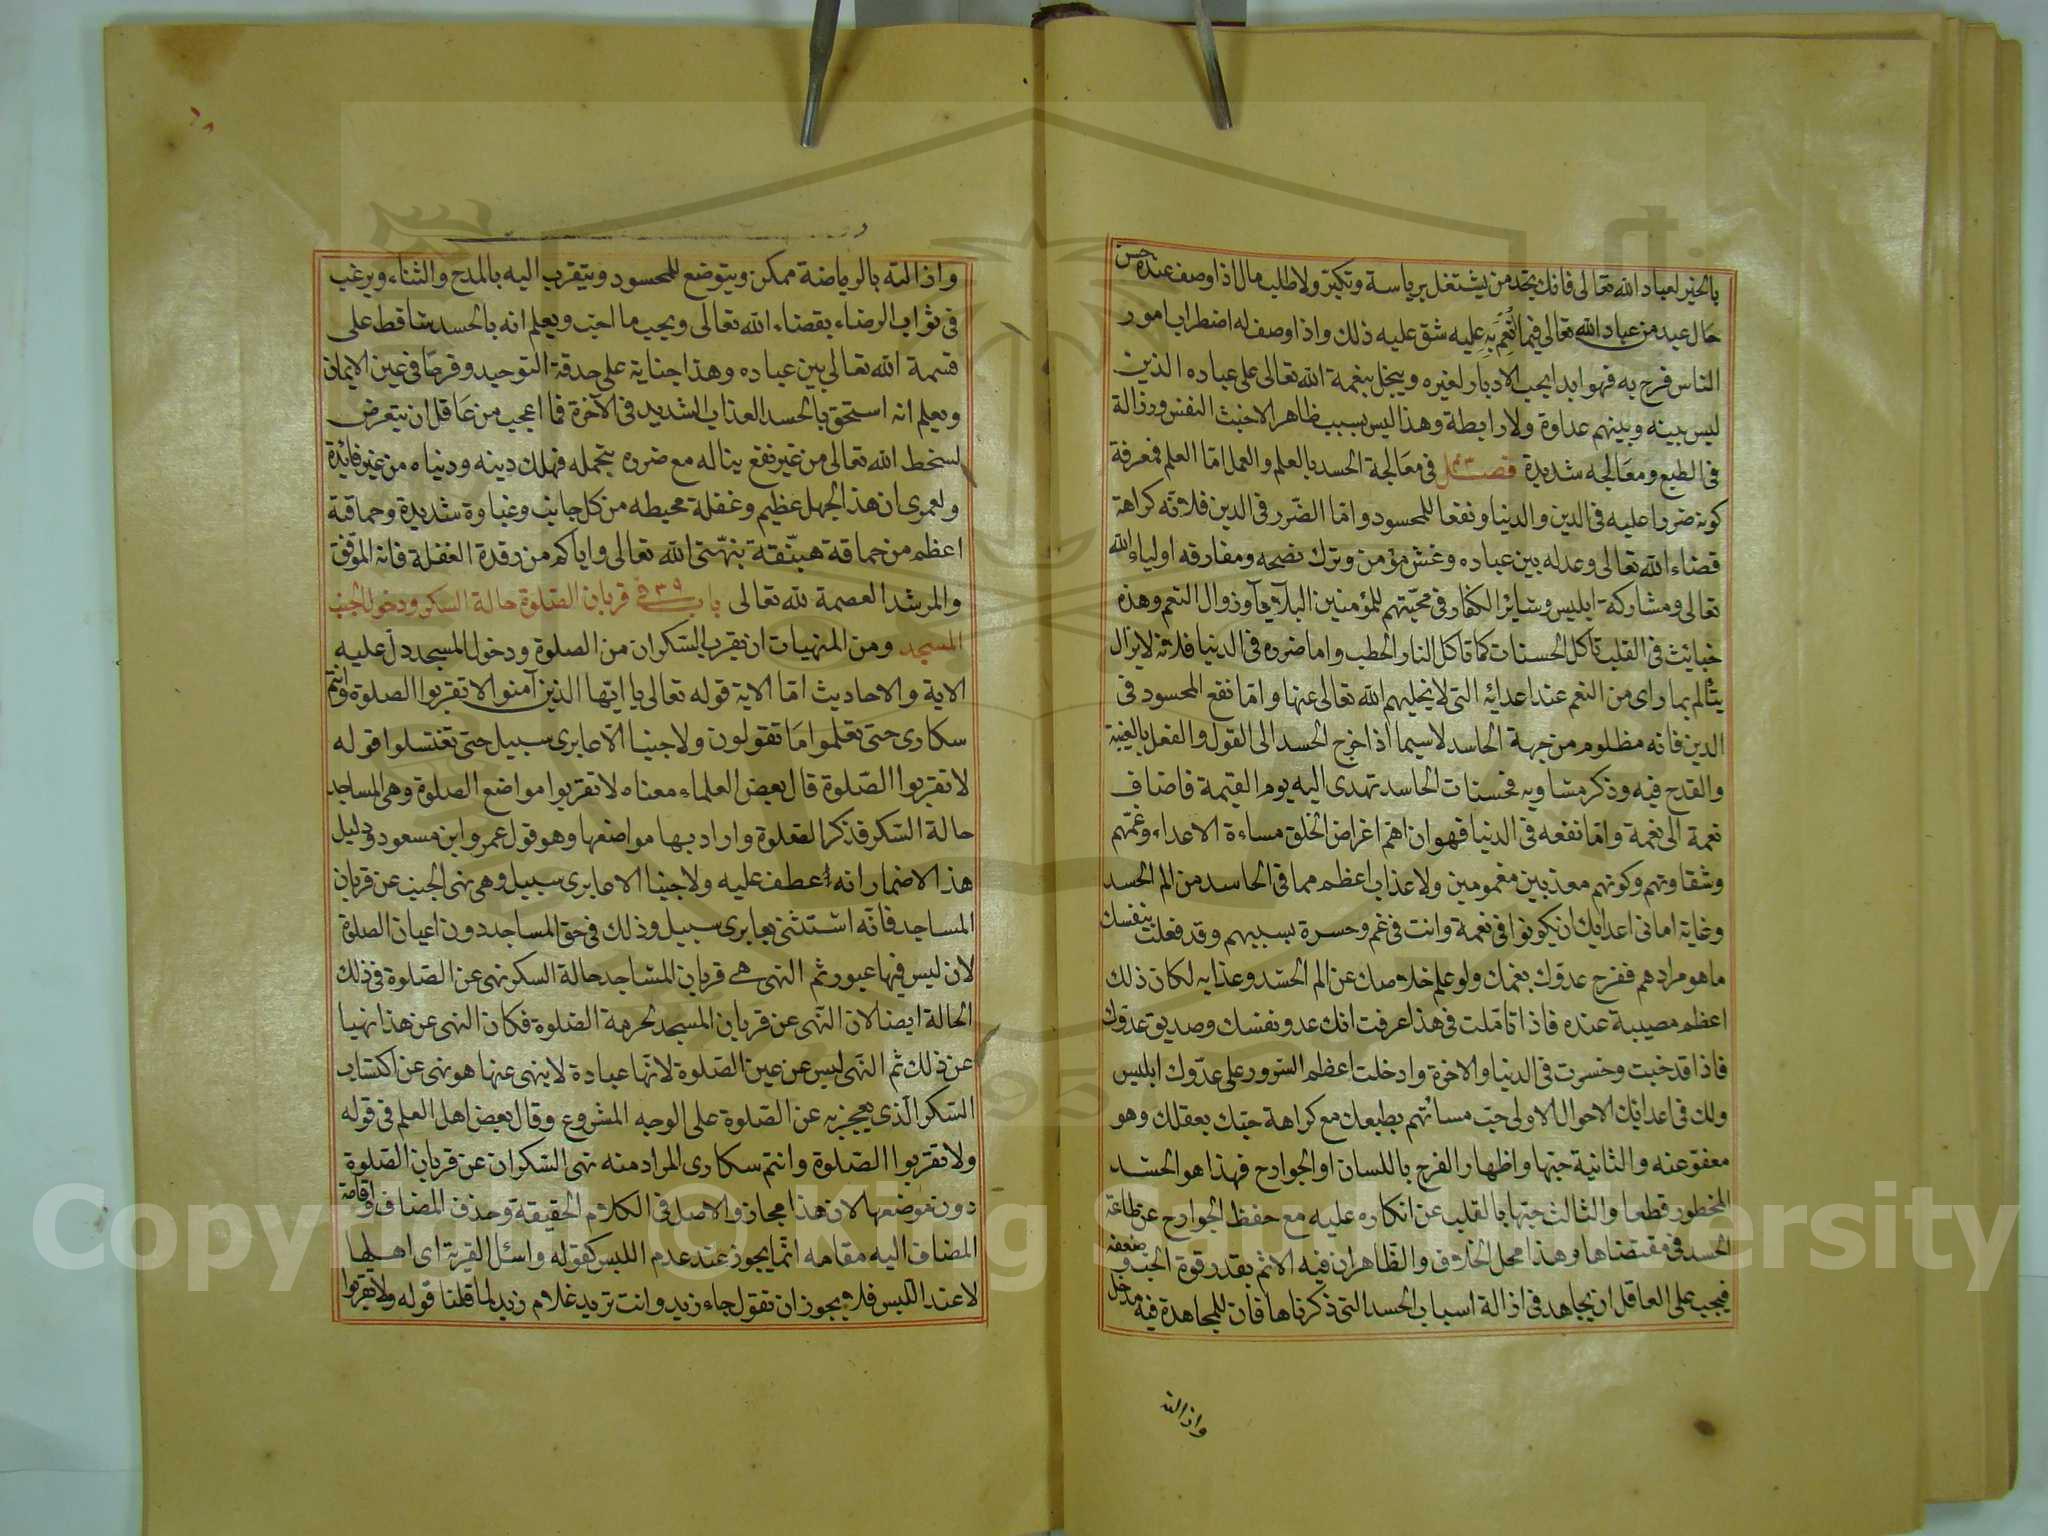 بالخير لعباد الله تعالى فانك تجد من يشتغل برياسة وتكبر ولا طلب مال اذا وصف عنده حسن
حال عبد من عباد الله تعالى فيما أُنعِمَ بِهِ عليه شق عليه ذلك واذا وصف له اضطراب امور
الناس فرح به فهو ابدا يحب الادبار لغيره ويبخل بنعمة الله تعالى على عباده الذين
ليس بينه وبينهم عداوة ولا رابطة وهذا ليس بسبب ظاهر الا خبث النفس ورذالة
فى الطبع ومعالجه شديدة فصل فى معالجة الحسد بالعلم والعمل امّا العلم فمعرفة
كونه ضررا عليه فى الدين والدنيا ونفعا للمحسود وامّا الضّرر فى الدين فلانّه كراهة
قضاء الله تعالى وعدله بين عباده وغش مؤمن وترك نصحه ومفارقه اولياء الله
تعالى ومشاركة ابليس وسائر الكفار فى محبّتهم للمؤمنين البلايا وزوال النعم وهذه
خبائث فى القلب تأكل الحسنات كما تاكل النار الحطب واما ضرره فى الدنيا فلانه لا يزال
يتألم بما راى من النعم عند اعدائه التى لا يخليهم الله تعالى عنها وامّا نفع المحسود فى
الدين فانه مظلوم من جهة الحاسد لاسيما اذا خرج الحسد الى القول والفعل بالغيبة
والقدح فيه وذكر مساويه فحسنات الحاسد تهدى اليه يوم القيمة فاضاف
نعمة الى نعمة وامّا نفعه فى الدنيا فهو ان اهمّ اغراض الخلق مساءة الاعداء وغمّهم
وشقاوتهم وكونهم معذبين مغمومين ولا عذاب اعظم مما فى الحاسد من الم الحسد
وغاية امانى اعدايك ان يكونوا فى نعمة وانت فى غم وحسرة بسببهم وقد فعلت بنفسك
ما هو مرادهم ففرح عدوّك بغمك ولو علم خلاصك عن الم الحسد وعذابه لكان ذلك
اعظم مصيبة عنده فاذا تامّلت فى هذا عرفت انك عدو نفسك وصديق عدوّك
فاذا قد خبت وخسرت فى الدنيا والاخرة وادخلت اعظم السّرور على عدّوك ابليس
ولك فى اعدائك الاحوال الاولى حبّ مسائتهم بطبعك مع كراهة حبّك بعقلك وهو
معفوّ عنه والثانية حبّها واظهار الفرح باللسان او الجوارح فهذا هو الحسد
المخطور قطعا والثالث حبّها بالقلب عن انكاره عليه مع حفظ الجوارح عن طاعة
الحسد فى مقتضاها وهذا محل الخلاف والظاهر ان فيه الاثم بقدر قوة الحب وضعفه
فيجب على العاقل ان يجاهد فى ازالة اسباب الحسد التى ذكرناها فان للمجاهدة فيه مدخل
واذالته
واذالته بالرياضة ممكن ويتوضع للمحسود ويتقرب اليه بالمدح والثناء ويرغب
فى ثواب الرضاء بقضاء الله تعالى ويحب ما احب ويعلم انه بالحسد ساقط على
قسمة الله تعالى بين عباده وهذا جناية على حدقة التوحيد وقرصا فى عين الايمان
ويعلم انه استحق بالحسد العذاب الشديد فى الآخرة فما اعجب من عاقل ان يتعرض
لسخط الله تعالى من غير نفع يناله مع ضرره بتحمله فهلك دينه ودنياه من غير فائدة
ولعمرى ان هذا الجهل عظيم وغفلة محيطه من كل جانب وغباوة شديدة وحماقة
اعظم من حماقة هبنّقة نبهّنى الله تعالى واياكم من رقدة الغفلة فانه الموّفق
والمرشد العصمة لله تعالى باب ٣٩ فى قربان الصّلوة حالة السكر ودخول الجنب
المسجد ومن المنهيات ان يقرب السّكران من الصلوة ودخول المسجد دلّ عليه
الاية والاحاديث امّا الاية قوله تعالى يا ايّها الذين آمنوا لا تقربوا الصلوة وانتم
سكارى حتى تعلموا ما تقولون ولا جنبا الّا عابرى سبيل حتى تغتسلوا قوله
لا تقربوا الصّلوة قال بعض العلماء معناه لا تقربوا مواضع الصلوة وهى المساجد
حالة السّكر فذكر الصّلوة واراد بها مواضعها وهو قول عمر وابن مسعود ودليل
هذا الاضمار انه عطف عليه ولا جنبا الا عابرى سبيل وهى نهى الجنب عن قربان
المساجد فانّه استثنى بعابرى سبيل وذلك فى حق المساجد دون اعيان الصلوة
لان ليس فيها عبور ثم النهى هے قربان المساجد حالة السكر نهى عن الصّلوة فى ذلك
الحالة ايضا لان النّهى عن قربان المسجد لحرمة الصّلوة فكان النهى عن هذا نهيا
عن ذلك ثم النّهى ليس عن عين الصّلوة لانّها عبادة لا ينهى عنها هو نهى عن اكتساب
السّكر الّذى يعجز به عن الصّلوة على الوجه المشروع وقال بعض اهل العلم فى قوله
ولا تقربوا الصّلوة وانتم سكارى المراد منه نهى السّكران عن قربان الصّلوة
دون موضعها لان هذا مجاز والاصل فى الكلام الحقيقة وحذف المضاف واقامة
المضاف اليه مقامه انّما يجوز عند عدم اللبس كقوله واسئل القرية اى اهلها
لا عند اللّبس فلا يجوز ان تقول جاء زيد وانت تريد غلام زيد لما قلنا قوله ولا تقربوا
Copyright © King Saud University